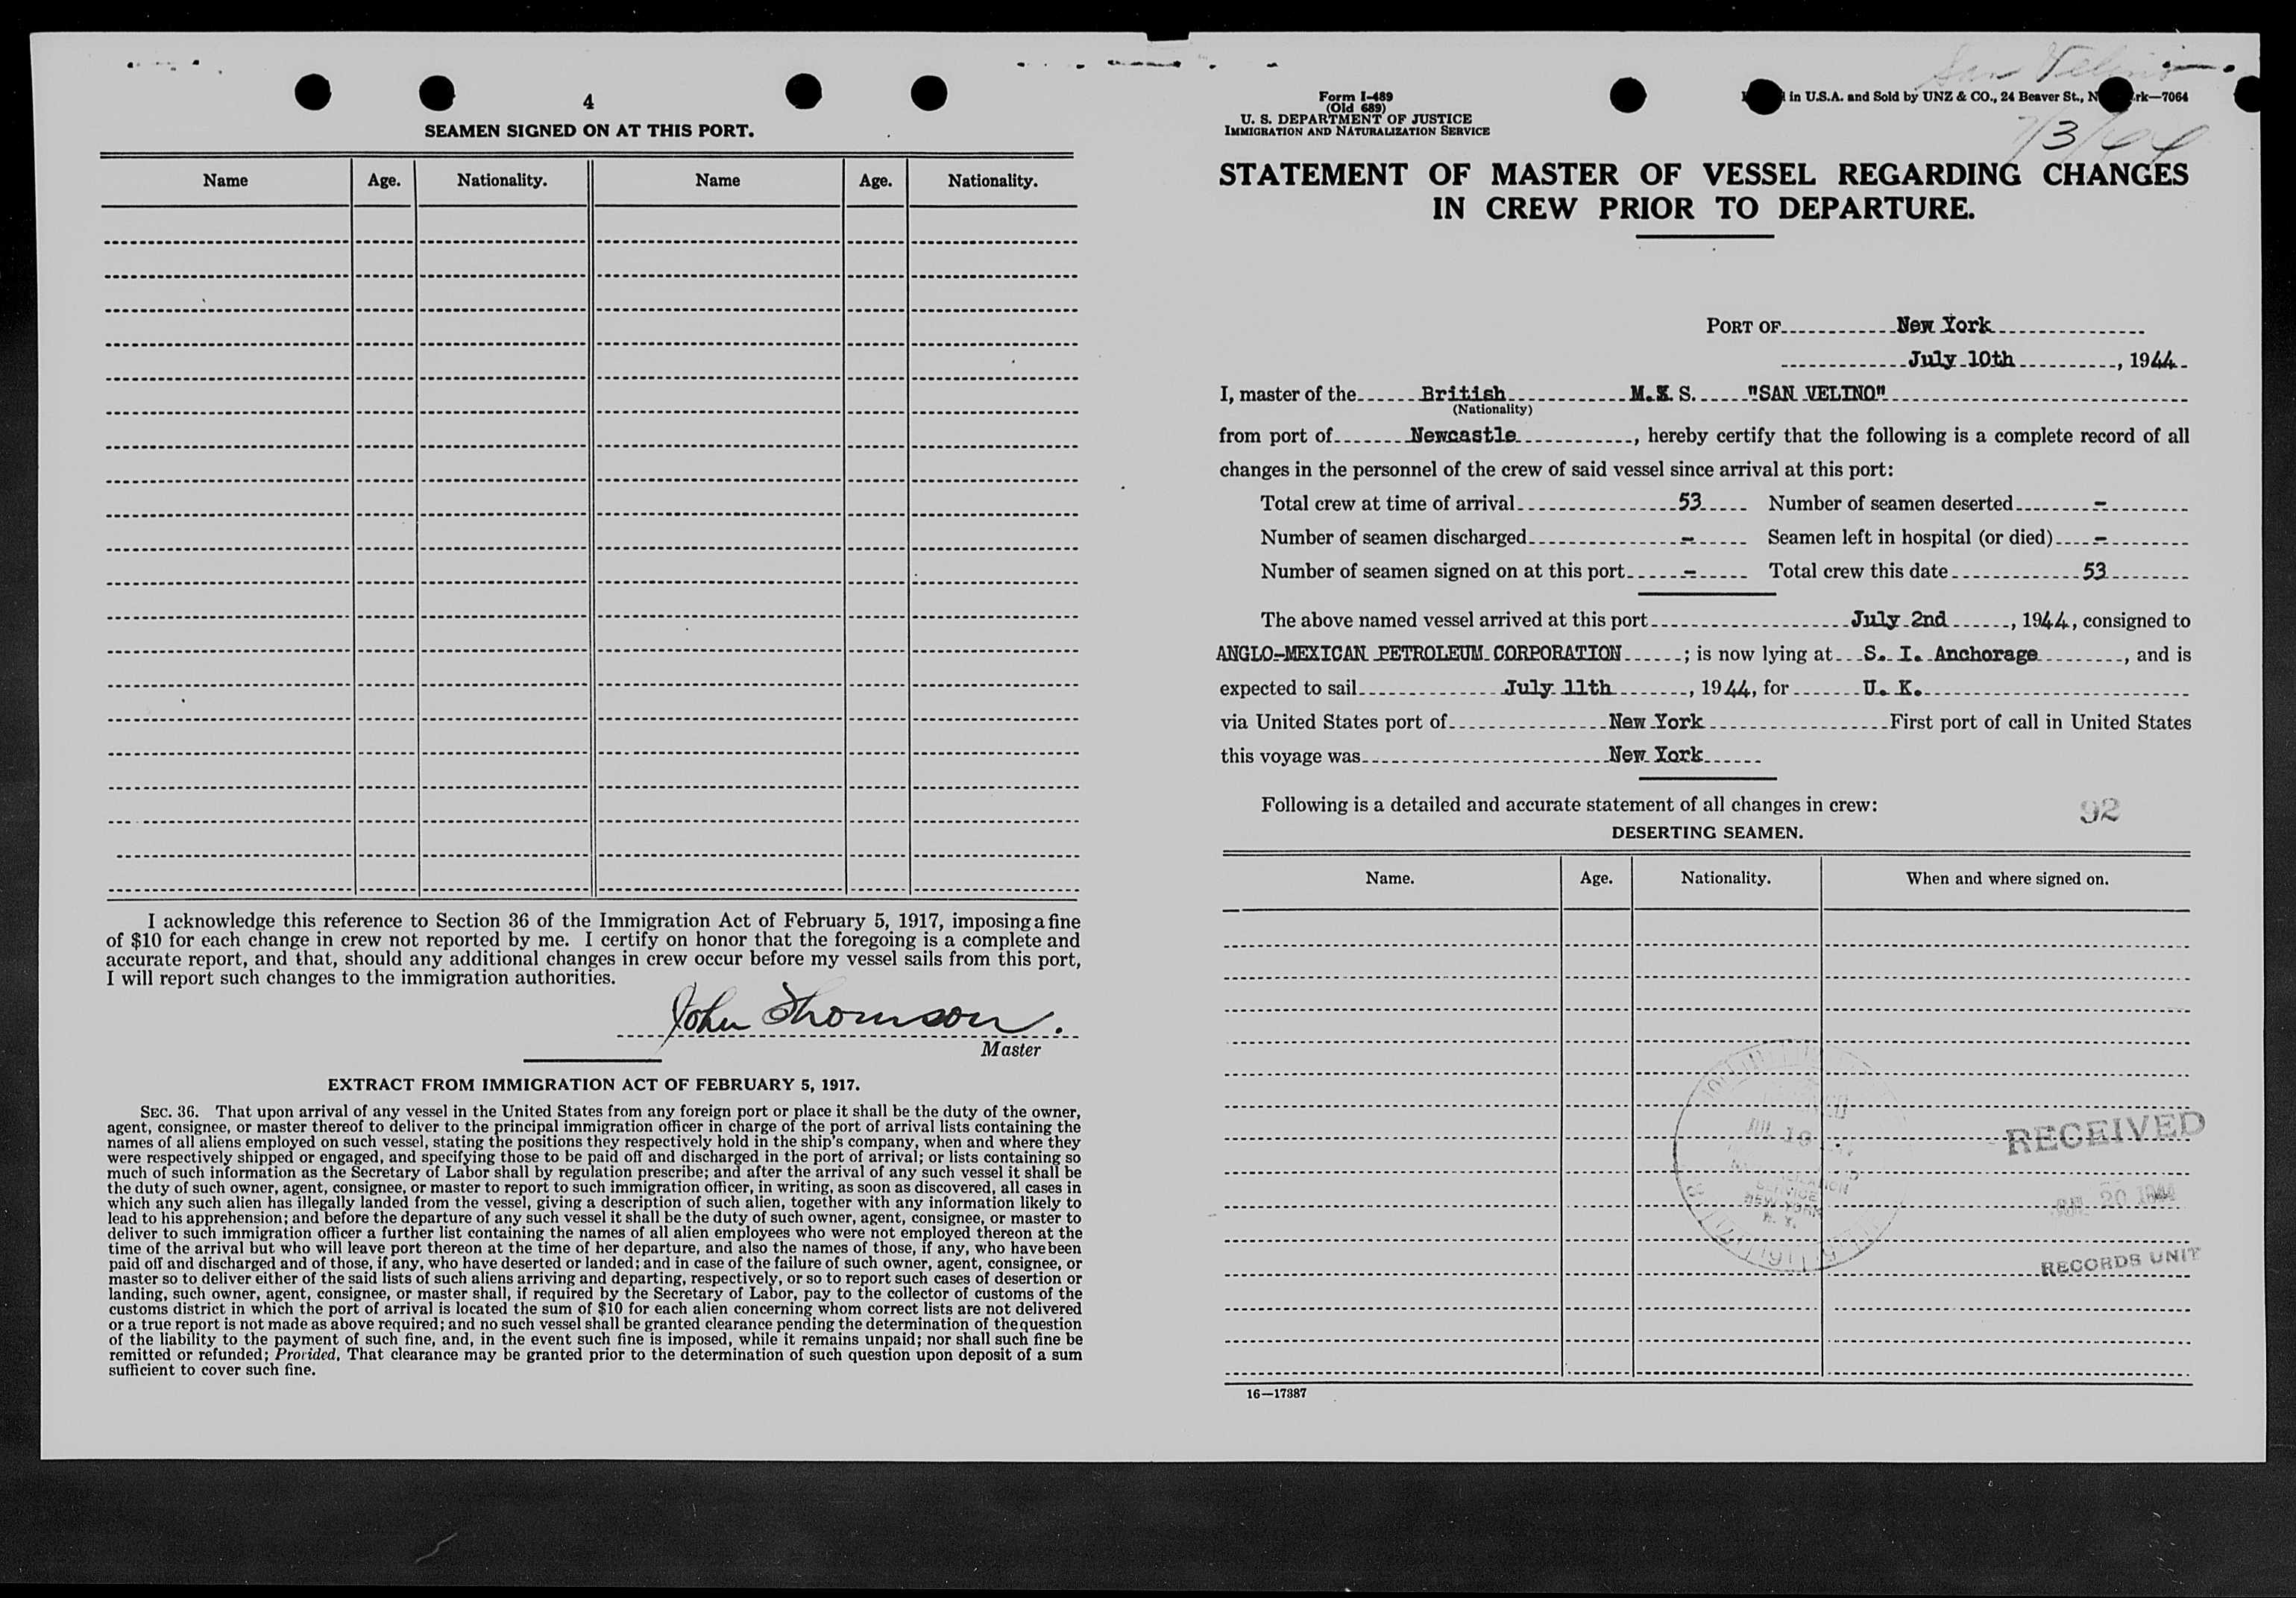 4
SEAMEN SIGNED ON AT THIS PORT.
Name Age. Nationality. Name Age. Nationality.
I acknowledge this reference to Section 36 of the Immigration Act of February 5, 1917, imposing a fine
of $10 for each change in crew not reported by me. I certify on honor that the foregoing is a complete and
accurate report, and that, should any additional changes in crew occur before my vessel sails from this port,
I will report such changes to the immigration authorities.
John Thomson.
Master
EXTRACT FROM IMMIGRATION ACT OF FEBRUARY 5, 1917.
SEC. 36. That upon arrival of any vessel in the United States from any foreign port or place it shall be the duty of the owner,
agent, consignee, or master thereof to deliver to the principal immigration officer in charge of the port of arrival lists containing the
names of all aliens employed on such vessel, stating the positions they respectively hold in the ship's company, when and where they
were respectively shipped or engaged, and specifying those to be paid off and discharged in the port of arrival; or lists containing so
much of such information as the Secretary of Labor shall by regulation prescribe; and after the arrival of any such vessel it shall be
the duty of such owner, agent, consignee, or master to report to such immigration officer, in writing, as soon as discovered, all cases in
which any such alien has illegally landed from the vessel, giving a description of such alien, together with any information likely to
lead to his apprehension; and before the departure of any such vessel it shall be the duty of such owner, agent, consignee, or master to
deliver to such immigration officer a further list containing the names of all alien employees who were not employed thereon at the
time of the arrival but who will leave port thereon at the time of her departure, and also the names of those, if any, who have been
paid off and discharged and of those, if any, who have deserted or landed; and in case of the failure of such owner, agent, consignee, or
master so to deliver either of the said lists of such aliens arriving and departing, respectively, or so to report such cases of desertion or
landing, such owner, agent, consignee, or master shall, if required by the Secretary of Labor, pay to the collector of customs of the
customs district in which the port of arrival is located the sum of $10 for each alien concerning whom correct lists are not delivered
or a true report is not made as above required; and no such vessel shall be granted clearance pending the determination of the question
of the liability to the payment of such fine, and, in the event such fine is imposed, while it remains unpaid; nor shall such fine be
remitted or refunded; Provided, That clearance may be granted prior to the determination of such question upon deposit of a sum
sufficient to cover such fine.
San Velino
7/3/44
Form I-489
(Old 689)
U. S. DEPARTMENT OF JUSTICE
IMMIGRATION AND NATURALIZATION SERVICE
in U.S.A. and Sold by UNZ & CO., 24 Beaver St., N rk—7064
STATEMENT OF MASTER OF VESSEL REGARDING CHANGES
IN CREW PRIOR TO DEPARTURE.
PORT OF New York
July 10th, 1944
I, master of the British M.X. S. "SAN VELINO"
(Nationality)
from port of Newcastle, hereby certify that the following is a complete record of all
changes in the personnel of the crew of said vessel since arrival at this port:
Total crew at time of arrival 53 Number of seamen deserted -
Number of seamen discharged - Seamen left in hospital (or died) -
Number of seamen signed on at this port - Total crew this date 53
The above named vessel arrived at this port July 2nd, 1944, consigned to
ANGLO-MEXICAN PETROLEUM CORPORATION; is now lying at S. I. Anchorage, and is
expected to sail July 11th, 1944, for U. K.
via United States port of New York First port of call in United States
this voyage was New York
Following is a detailed and accurate statement of all changes in crew:
92
DESERTING SEAMEN.
Name. Age. Nationality. When and where signed on.
JUL 10
SERVICE
NEW YORK
N. Y.
RECEIVED
JUL 20 1944
RECORDS UNIT
16—17387